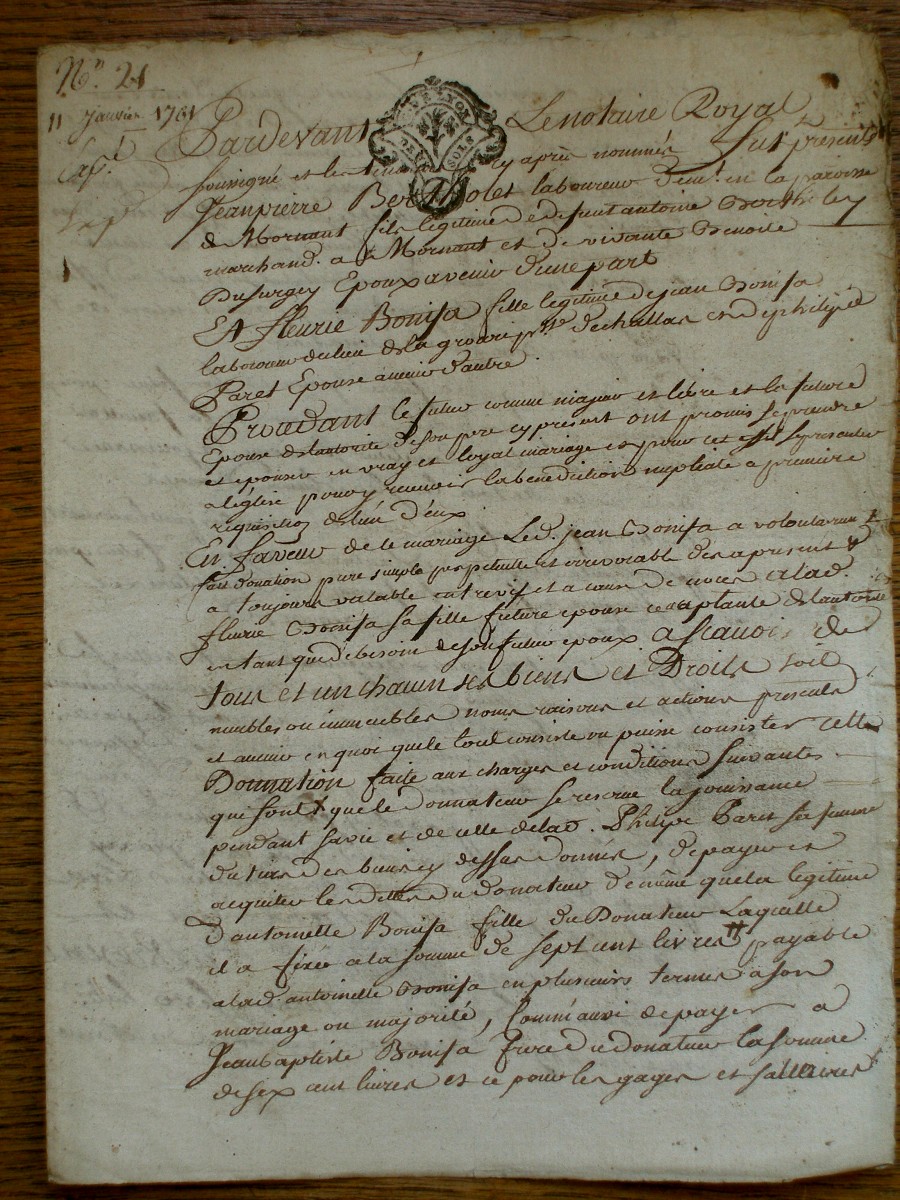 N.° 21
11 Janvier 1761
Pardevant Le notaire Royal
GEN. LYON
DEUX SOLS
soussigné et les temoins cy après nommés fut présent
Jeanpierre Bertholet laboureur dem.t en la paroisse
de Mornant fils legitime de defunt antoine Berthollet
marchand a Mornant et de vivante Benoite
Dusurgey Epoux avenir d'une part
Et fleurie Bonifa fille legitime de jean Bonifa
laboureur du lieu de la p.sse d'echallas et de philipe
Paret Epouse avenir d'autre.
Procedant le futur comme majeur et libre et la future
Epouse de l'autorité de son pere cy present ont promis se prendre
et epouser en vray et loyal mariage et pour cet effet se presenter
a l'église pour y recevoir la benediction nuptiale a premiere
requisition de l'un d'eux.
En faveur de ce mariage Led. jean Bonifa a volontairem.t
fait donation pure simple perpetuelle et irrevocable des apresent et
a toujours valable entrevifs et a cause de noces a lad.
fleurie Bonifa sa fille future epouse acceptante de l'autorité
en tant que de besoin de son futur epoux a scavoir de
tous et un chacun ses biens et Droits soit
meubles ou immeubles noms raisons et actions presents
et avenir en quoi que le tout consiste ou puisse consister cette
Donnation faite aux charges et conditions suivantes
qui sont que le donnateur se reserve la jouissance
pendant sa vie et de celle de lad. Philipe Paret sa femme
du tiers des biens cy dessus donnés, de payer et
acquiter les dettes du donateur de même que la legitime
d'antoinette Bonifa fille du Donateur Laquelle
il a fixée a la somme de sept cent livres payable
a lad. antoinette Bonifa en plusieurs termes a son
mariage ou majorité, comm'aussi de payer a
Jeanbaptiste Bonifa frere du donateur la somme
de six cent livres et ce pour les gages et sallaires